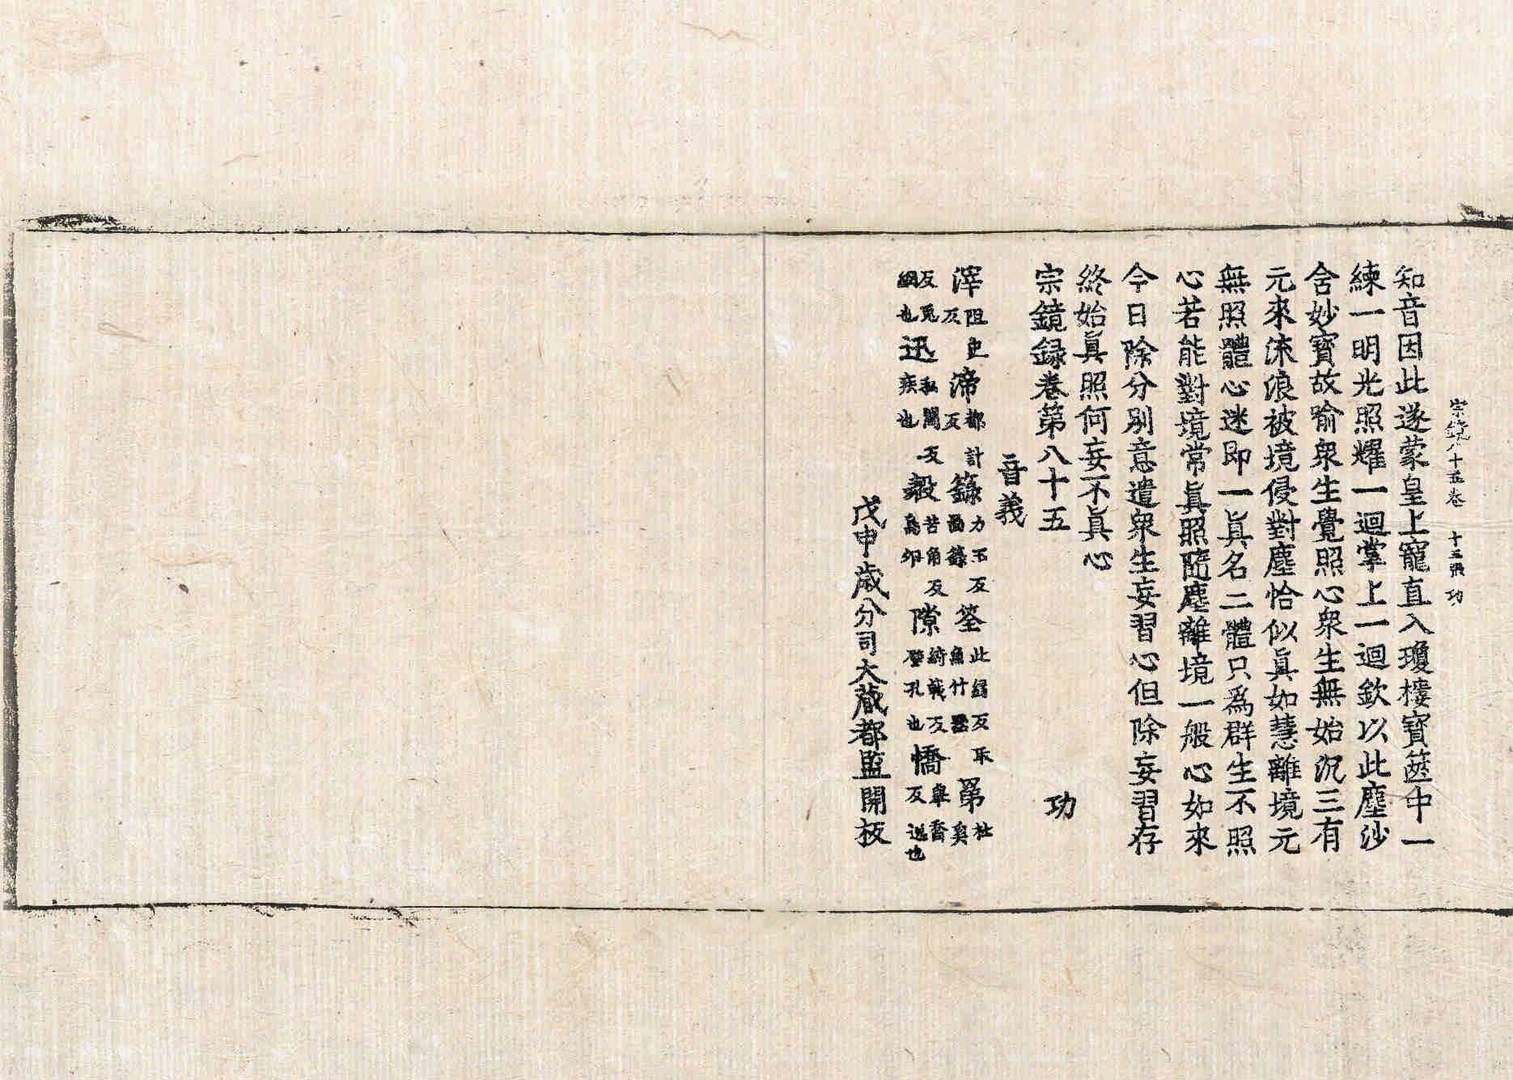 宗鏡八十五卷 十三張 功
知音因此遂蒙皇上寵直入瓊樓寶篋中一
練一明光照耀一迴掌上一迴欽以此塵沙
含妙寶故喻衆生覺照心衆生無始沉三有
元來流浪被境侵對塵恰似眞如慧離境元
無照體心迷即一眞名二體只爲群生不照
心若能對境常眞照隨塵離境一般心如來
今日除分別意遣衆生妄習心但除妄習存
終始眞照何妄不眞心
宗鏡錄卷第八十五 功
音義
滓阻史反 渧都計反 籙力玉反圖籙 筌此緣反取魚竹器 第杜奚
反兎網也 迅私閏反疾也 㲉苦角反鳥卵 隙綺戟反壁孔也 憍擧喬反逸也
戊申歲分司大藏都監開板